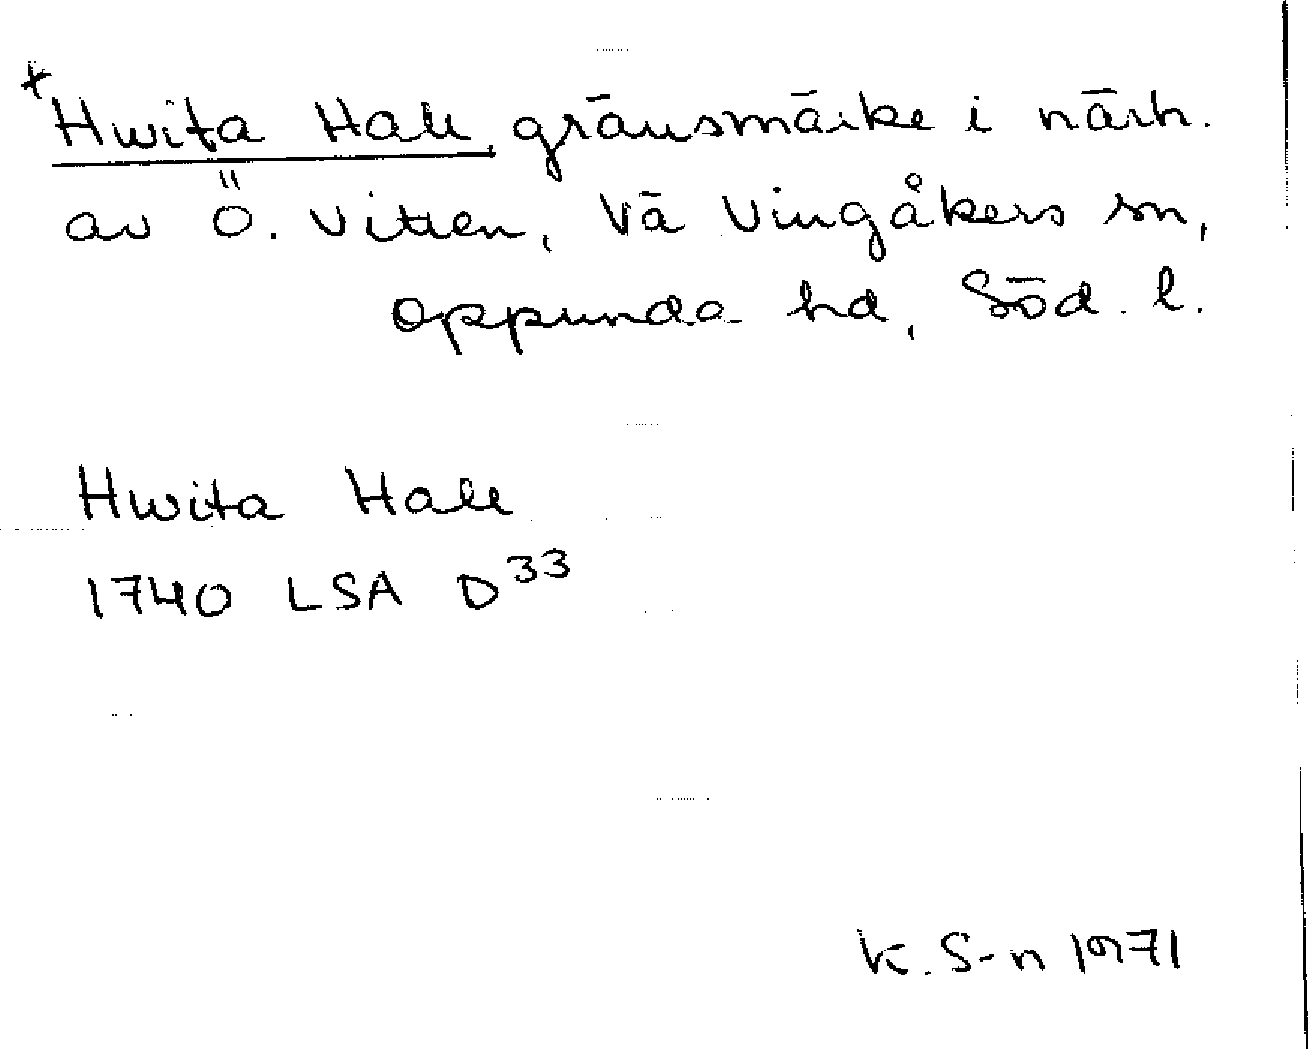 *Hwita Hall, gränsmärke i närh.
av Ö. Vitten, Vä Vingåkers sn,
Oppunda hd, Söd. l.
Hwita Hall
1740 LSA D33
K. S-n 1971